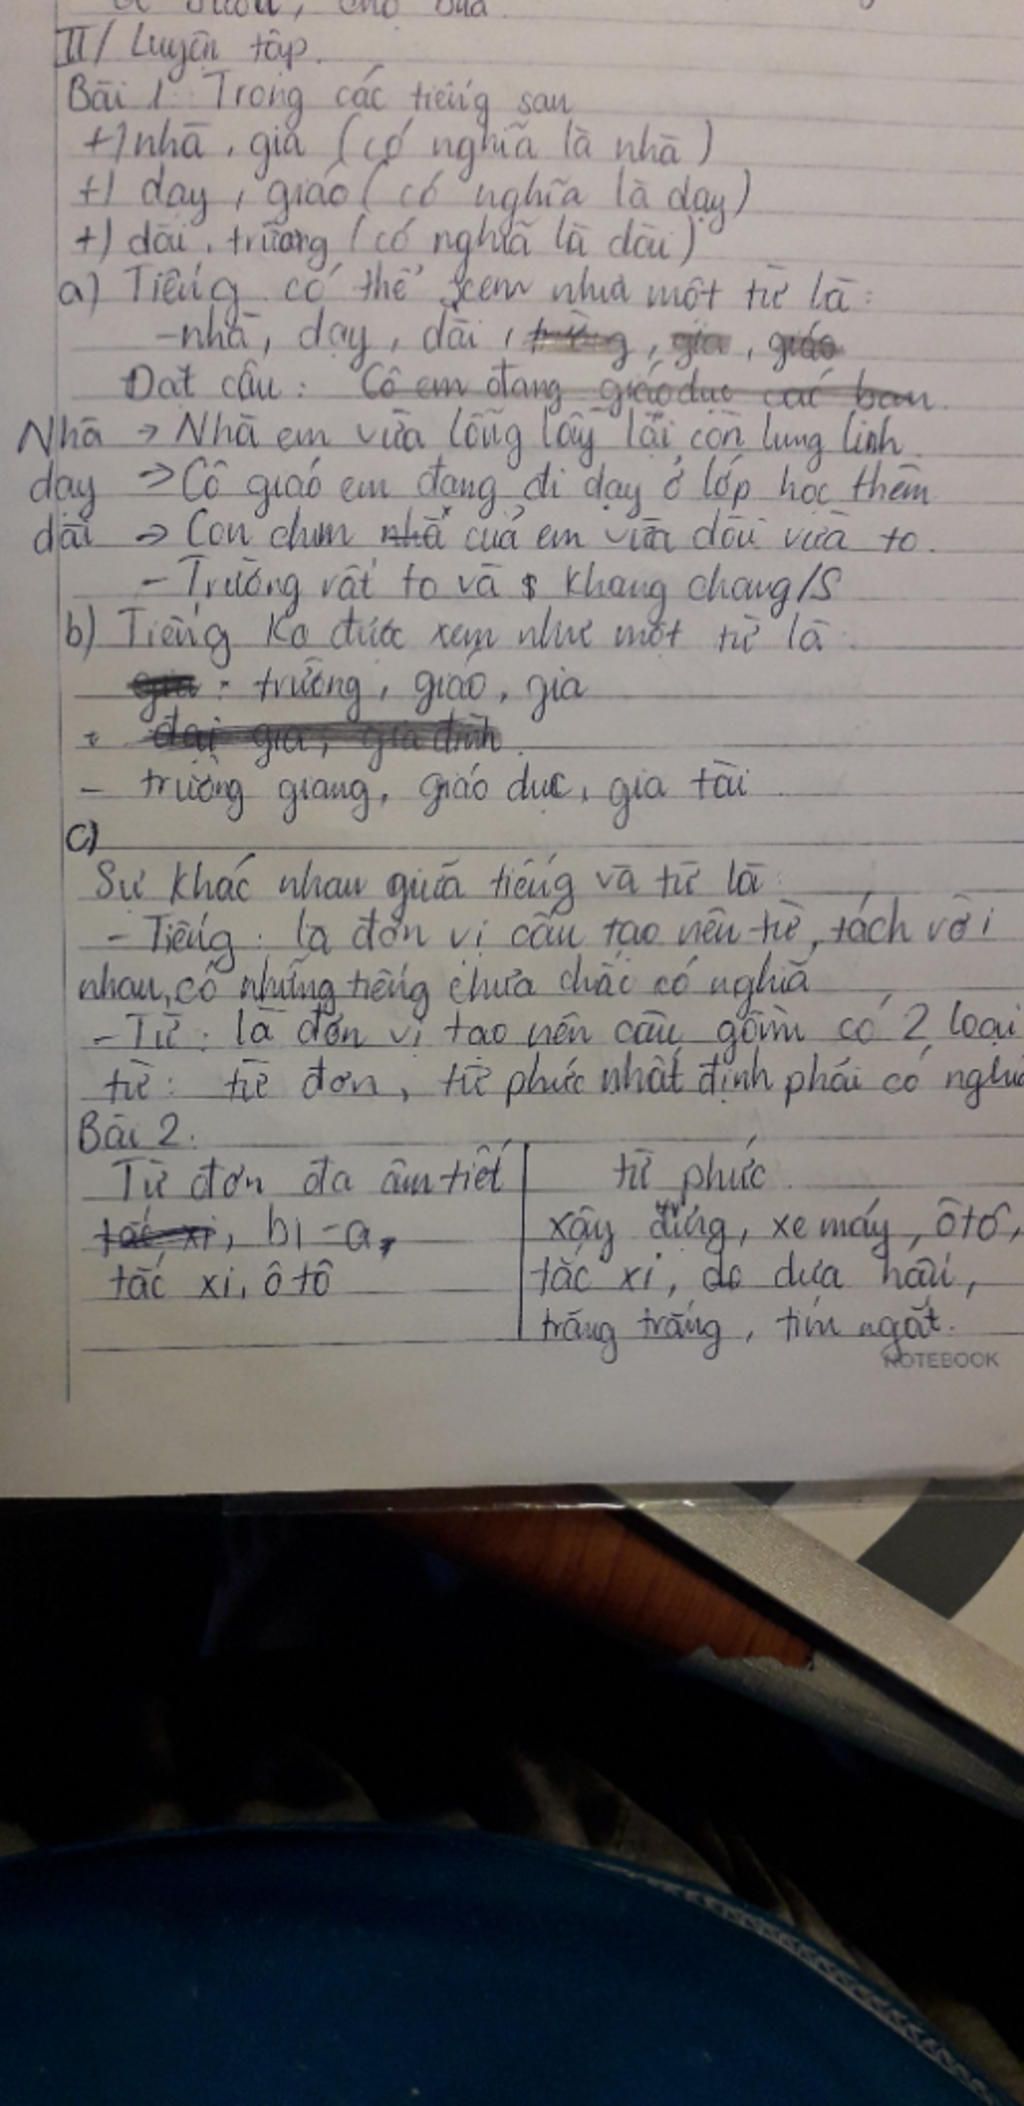 II/ Luyện tập.
Bài 1: Trong các tiếng sau
+) nhà, gia (có nghĩa là nhà)
+) dạy, giáo (có nghĩa là dạy)
+) dài, trường (có nghĩa là dài)
a) Tiếng có thể xem như một từ là:
- nhà, dạy, dài, gia, giáo
Đặt câu: Cô em đang giáo dục các bạn.
Nhà → Nhà em vừa lộng lẫy lại còn lung linh.
dạy → Cô giáo em đang đi dạy ở lớp học thêm
dài → Con chim nhà của em vừa dài vừa to.
- Trường rất to và khang chang/S
b) Tiếng Ko được xem như một từ là:
gia: trường, giáo, gia
+ đại gia, gia đình.
- trường giang, giáo dục, gia tài
c)
Sự khác nhau giữa tiếng và từ là:
- Tiếng: là đơn vị cấu tạo nên từ, tách với
nhau, có những tiếng chưa chắc có nghĩa
- Từ: là đơn vị tạo nên câu gồm có 2 loại
từ: từ đơn, từ phức nhất định phải có nghĩa
Bài 2:
Từ đơn đa âm tiết
từ phức
tắc xi, bi-a,
xây dựng, xe máy, ôtô,
tắc xi, ô tô
tắc xi, do dưa hấu,
trăng trắng, tím ngắt.
NOTEBOOK